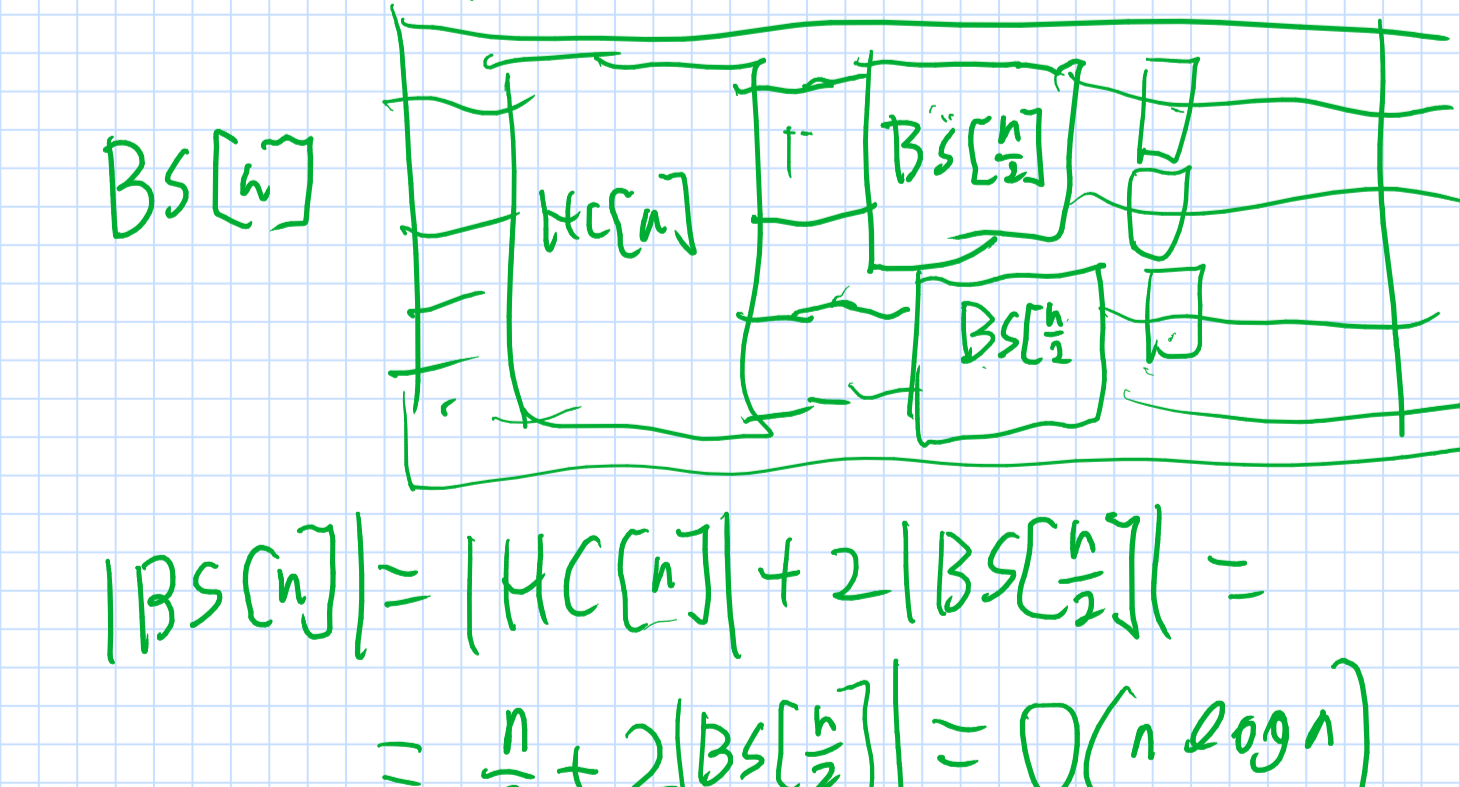 BS[n]
HC[n]
BS[n/2]
BS[n/2
|BS[n]| = |HC[n]| + 2|BS[n/2]| =
= n/ + 2|BS[n/2]| = O(n log n)